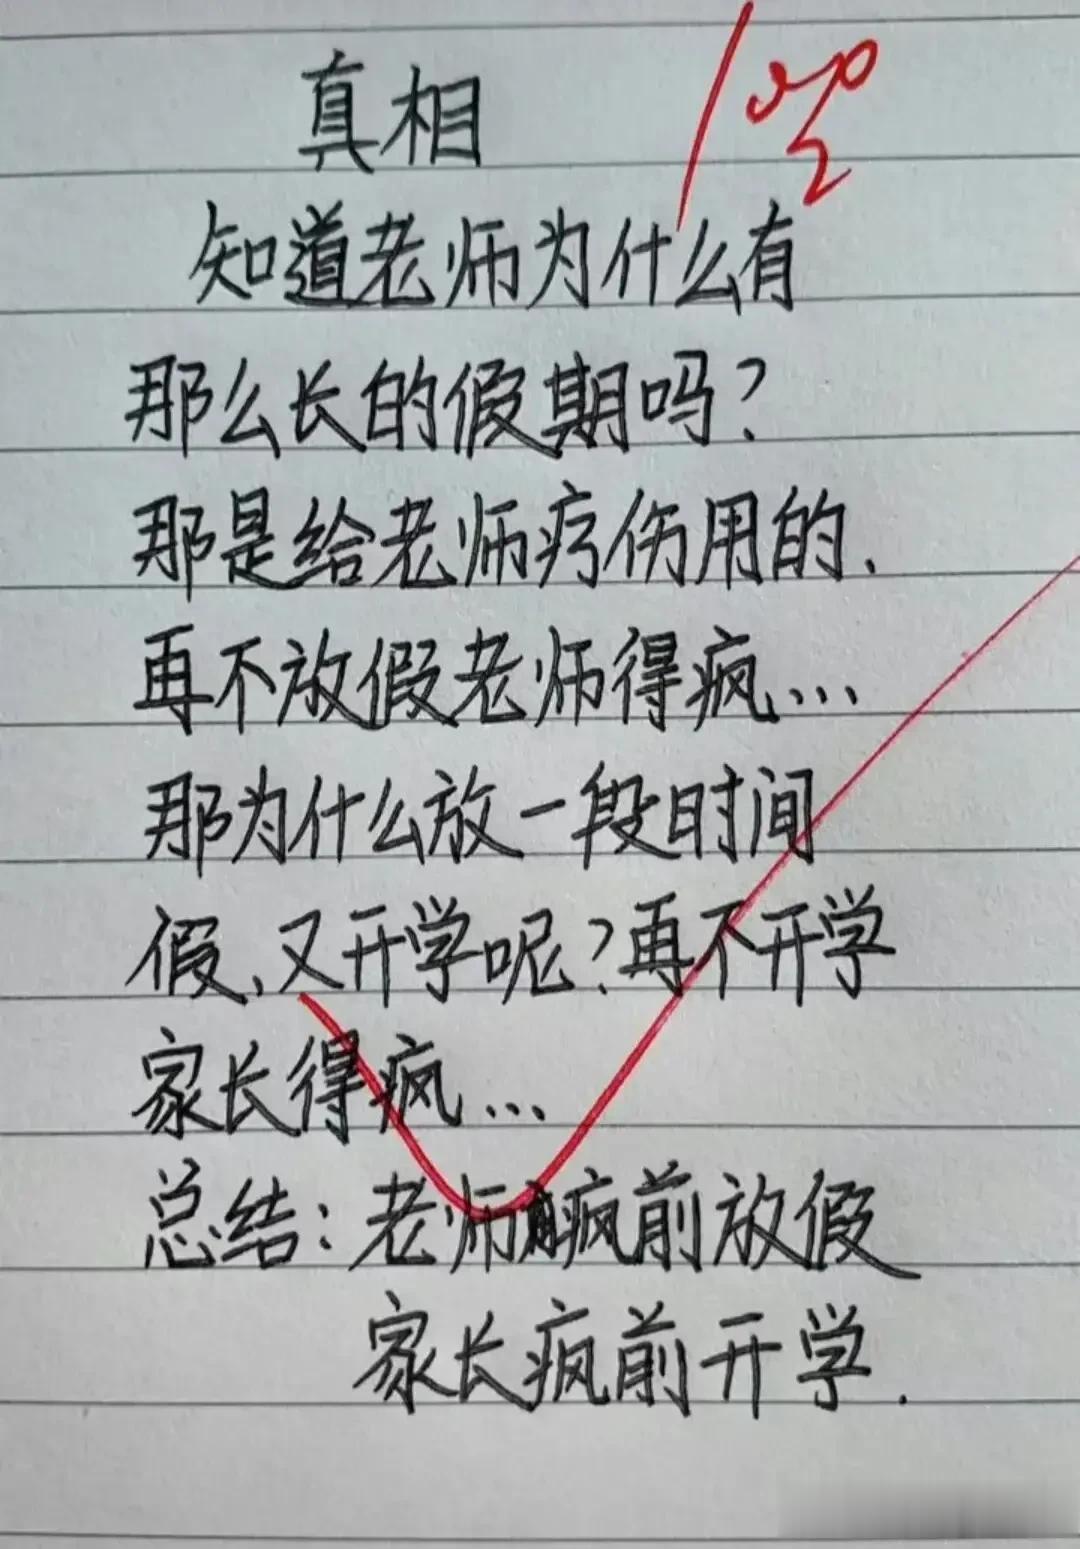 真相
知道老师为什么有
那么长的假期吗?
那是给老师疗伤用的.
再不放假老师得疯...
那为什么放一段时间
假、又开学呢?再不开学
家长得疯...
总结:老师疯前放假
家长疯前开学.